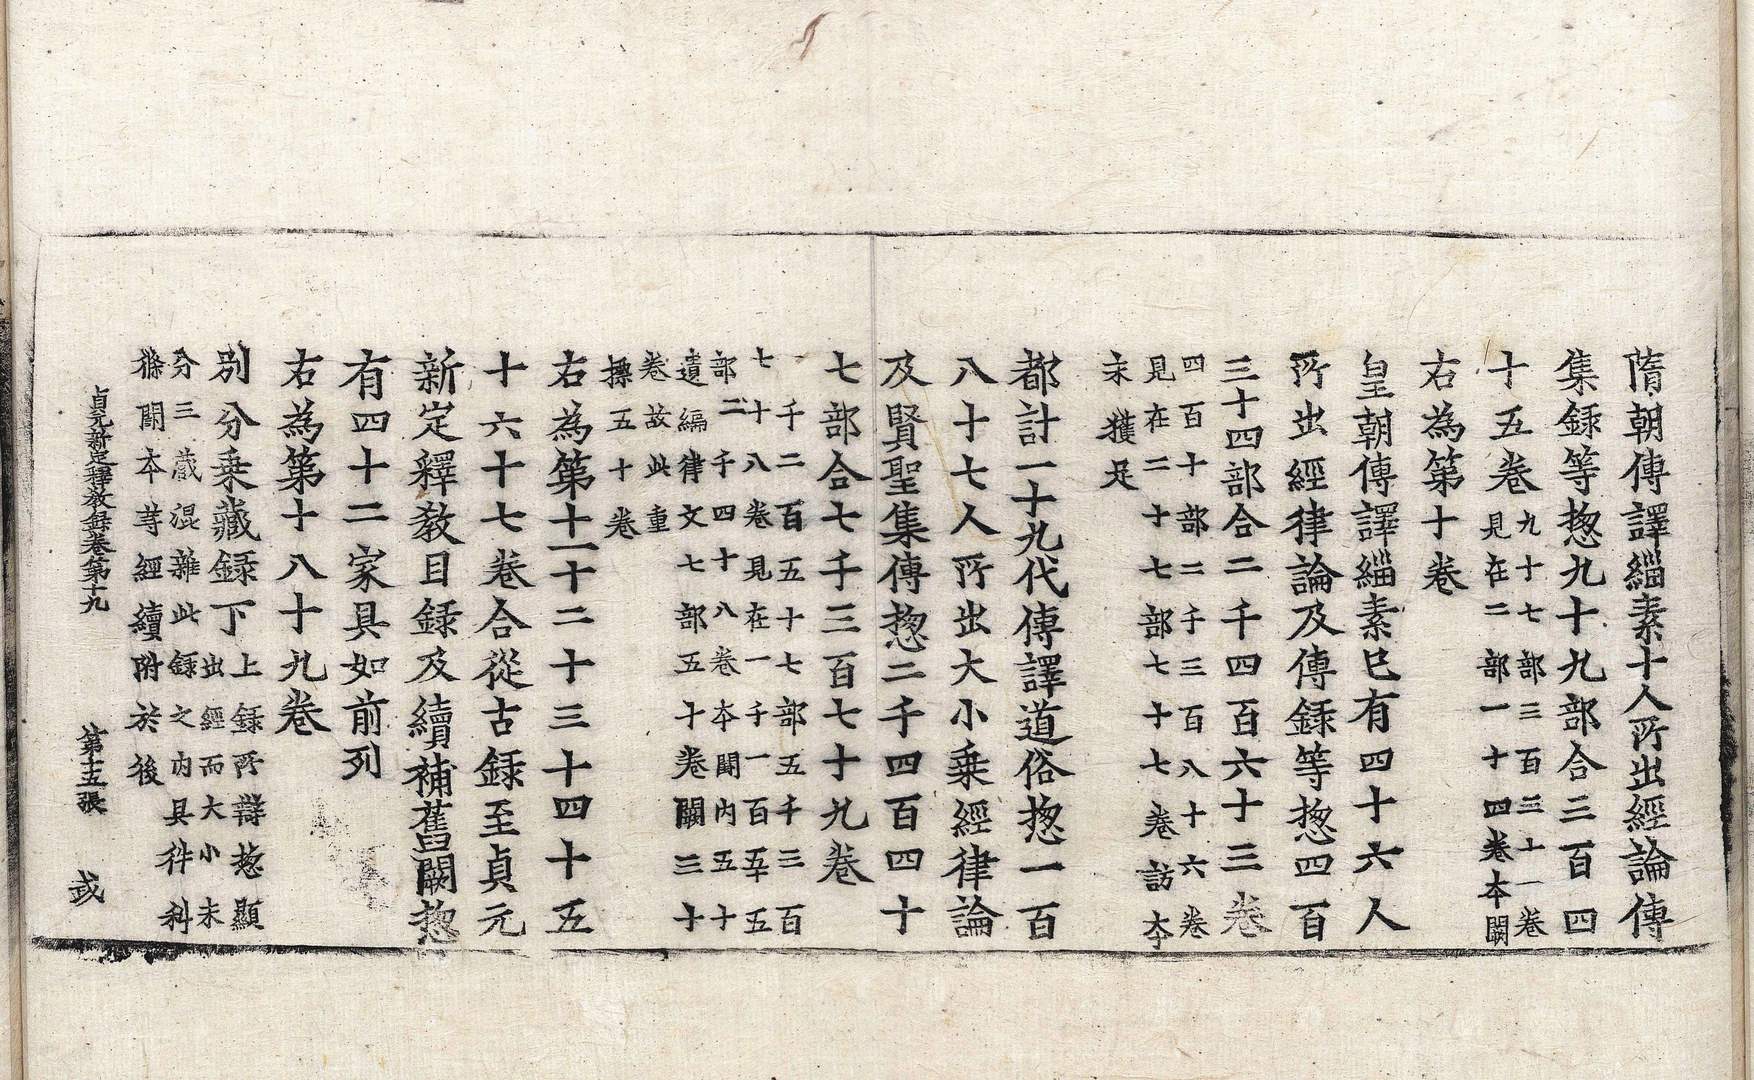 隋朝傳譯緇素十人所出經論傳
集録等捴九十九部合三百四
十五卷九十七部三百三十一卷
見在二部一十四卷本闕
右為第十卷
皇朝傳譯緇素已有四十六人
所出經律論及傳録等捴四百
三十四部合二千四百六十三卷
四百十部二千三百八十六卷
見在二十七部七十七卷訪本
未獲足
都計一十九代傳譯道俗捴一百
八十七人所出大小乗經律論
及賢聖集傳捴二千四百四十
七部合七千三百七十九卷
千二百五十七部五千三百
七十八卷見在一千一百五十五
部二千四十八卷本闕内五十
遺編律文七部五十卷闕三十
卷故此重
標五十卷
右為第十一十二十三十四十五
十六十七卷合從古録至貞元
新定釋教目録及續補舊闕捴
有四十二家具如前列
右為第十八十九卷
別分乗藏録下上録所辯捴顯
出經而大小未
分三蔵混雜此録之内具件科
條闕本等經續附於後
貞元新定釋教録卷第十九 第十五張 㦯